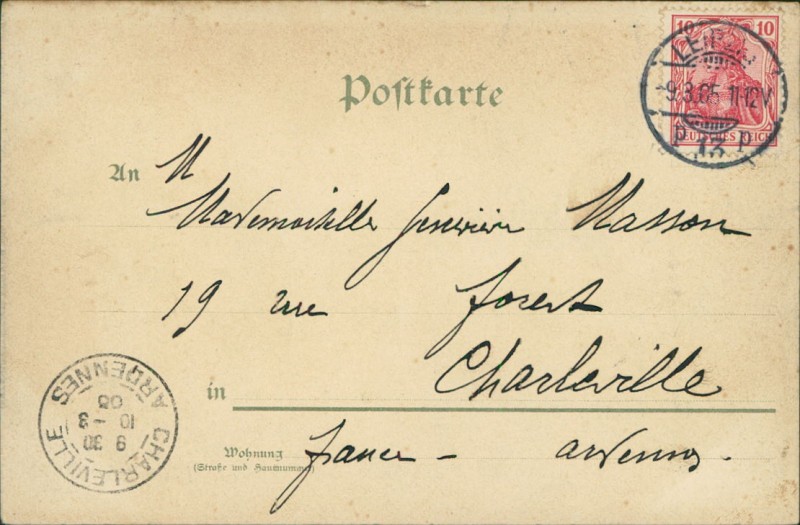 10 10
LEIPZIG
-9.3.05. 11-12V
13
DEUTSCHES REICH
Postkarte
An M
Mademoiselle Geneviève Masson
19 rue Forest
in Charleville
Wohnung
(Straße und Hausnummer)
France - Ardennes.
CHARLEVILLE
ARDENNES
9 30
10 - 3
05